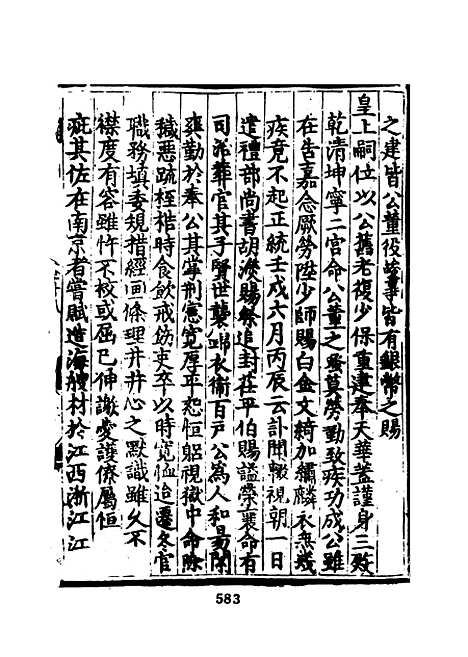 之建皆公董役竣事皆有銀幣之賜
皇上嗣位以公舊老復少保重建奉天華蓋謹身三殿
乾清坤寧二宮命公董之蚤莫勞勩致疾功成公雖
在告嘉念厥勞陞少師賜白金文綺加繡麟衣無幾
疾竟不起正統壬戌六月丙辰云訃聞輟視朝一日
遣禮部尚書胡濙賜祭追封茌平伯賜謚榮襄命有
司治葬官其子賢世襲錦衣衛百戶公為人和易閑
爽勤於奉公其掌刑憲寬厚平恕恒躬視獄中命除
穢惡疏桎梏時食飲戒飭吏卒以時寬恤迨遷冬官
職務填委規措經畫條理井井心之默識雖久不
襟度有容雖忤不校或屈己伸謝愛護僚屬恒
疵其佐在南京者嘗賦造海艘材於江西浙江江
583